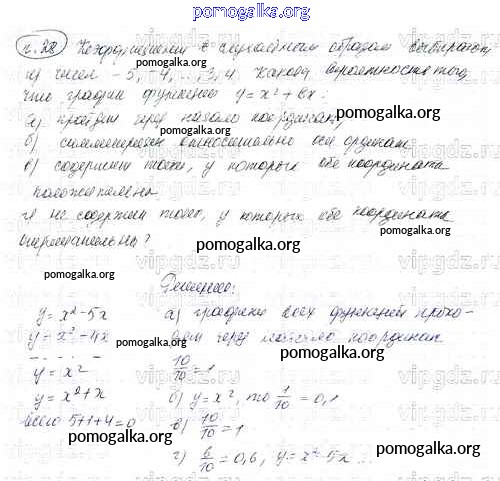 pomogalka.org
г. 28 Коэффициент в случайным образом выбирают
из чисел -5, -4, ..., 3, 4. Какова вероятность того,
что график функции y = x² + bx:
а) пройдёт через начало координат;
б) симметричен относительно оси ординат
в) содержит точки, у которых обе координаты
положительны
г) не содержит точек, у которых обе координаты
отрицательны?
pomogalka.org
Решение:
y = x² - 5x
y = x² - 4x
- - - - -
y = x²
y = x² + x
всего 5+1+4=0
а) графики всех функций прохо-
дят через начало координат
10/10 = 1
б) y = x², то 1/10 = 0,1
в) 10/10 = 1
г) 6/10 = 0,6, y = x² - 5x ...
pomogalka.org
vipgdz.ru